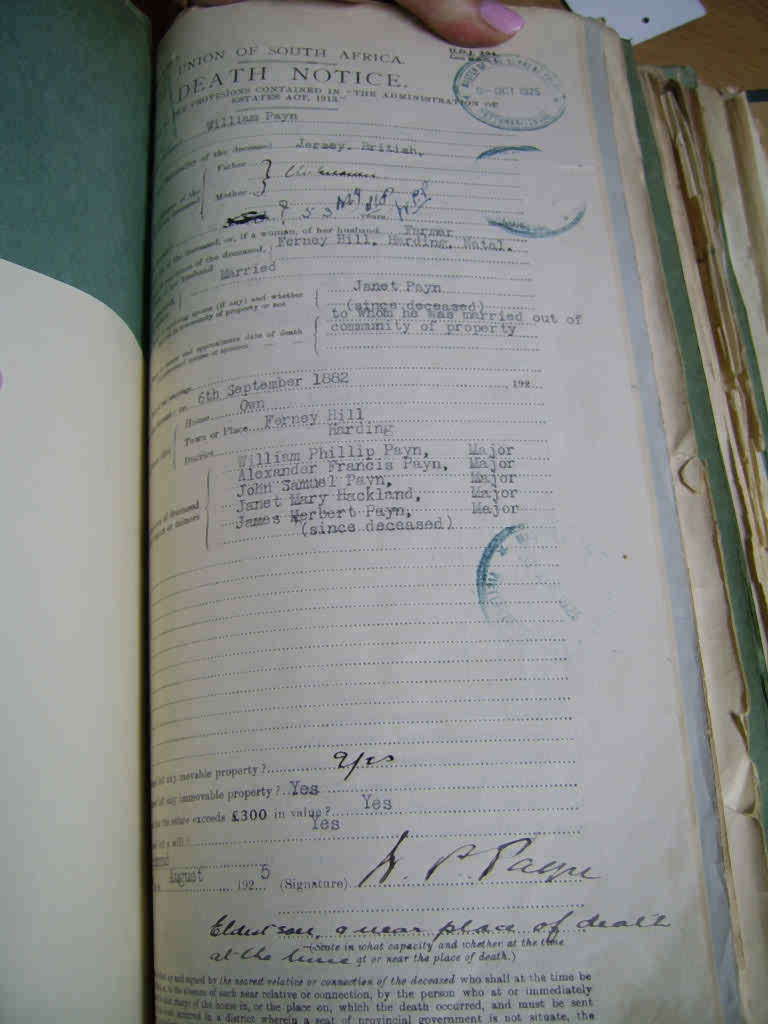 UNION OF SOUTH AFRICA.
DEATH NOTICE.
PROVISIONS CONTAINED IN "THE ADMINISTRATION OF
ESTATES ACT, 1913."
William Payn
of the deceased Jersey. British.
Father
Mother
? 53 years
the deceased, or, if a woman, of her husband Farmer
of the deceased, Ferney Hill, Harding, Natal.
Married
spouse (if any) and whether Janet Payn
of property or not (since deceased)
to whom he was married out of
and approximate date of death community of property
6th September 1882 192
Home Own
Town or Place Ferney Hill
District Harding
William Phillip Payn, Major
Alexander Francis Payn, Major
John Samuel Payn, Major
Janet Mary Hackland, Major
James Herbert Payn, Major
(since deceased)
any movable property? Yes
any immovable property? Yes
the estate exceeds £300 in value? Yes
a will? Yes
August 1925 (Signature) W. P. Payn
Eldest son, & near place of death
(State in what capacity and whether at the time
at the time at or near the place of death.)
up and signed by the nearest relative or connection of the deceased who shall at the time be
the absence of such near relative or connection, by the person who at or immediately
charge of the house in, or the place on, which the death occurred, and must be sent
occurred in a district wherein a seat of provincial government is not situate, the